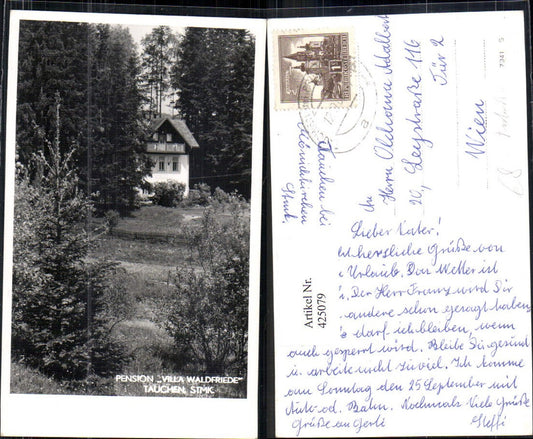 PENSION „VILLA WALDFRIEDE"
TAUCHEN, STMK.
Artikel Nr.
425079
Tauchen bei
Stmk.
An
Herrn Adalbert
20, Leystraße 116
Tür 2
Wien
7241 S
Lieber Vater!
herzliche Grüße von
Urlaub. Das Wetter ist
Der Herr Franz wird Dir
andere schon gesagt haben,
darf ich bleiben, wenn
auch gesperrt wird. Bleibe Du gesund
u. arbeite nicht zuviel. Ich komme
am Sonntag den 25 September mit
Auto od. Bahn. Nochmals viele Grüße
Grüße an Gerli
Steffi